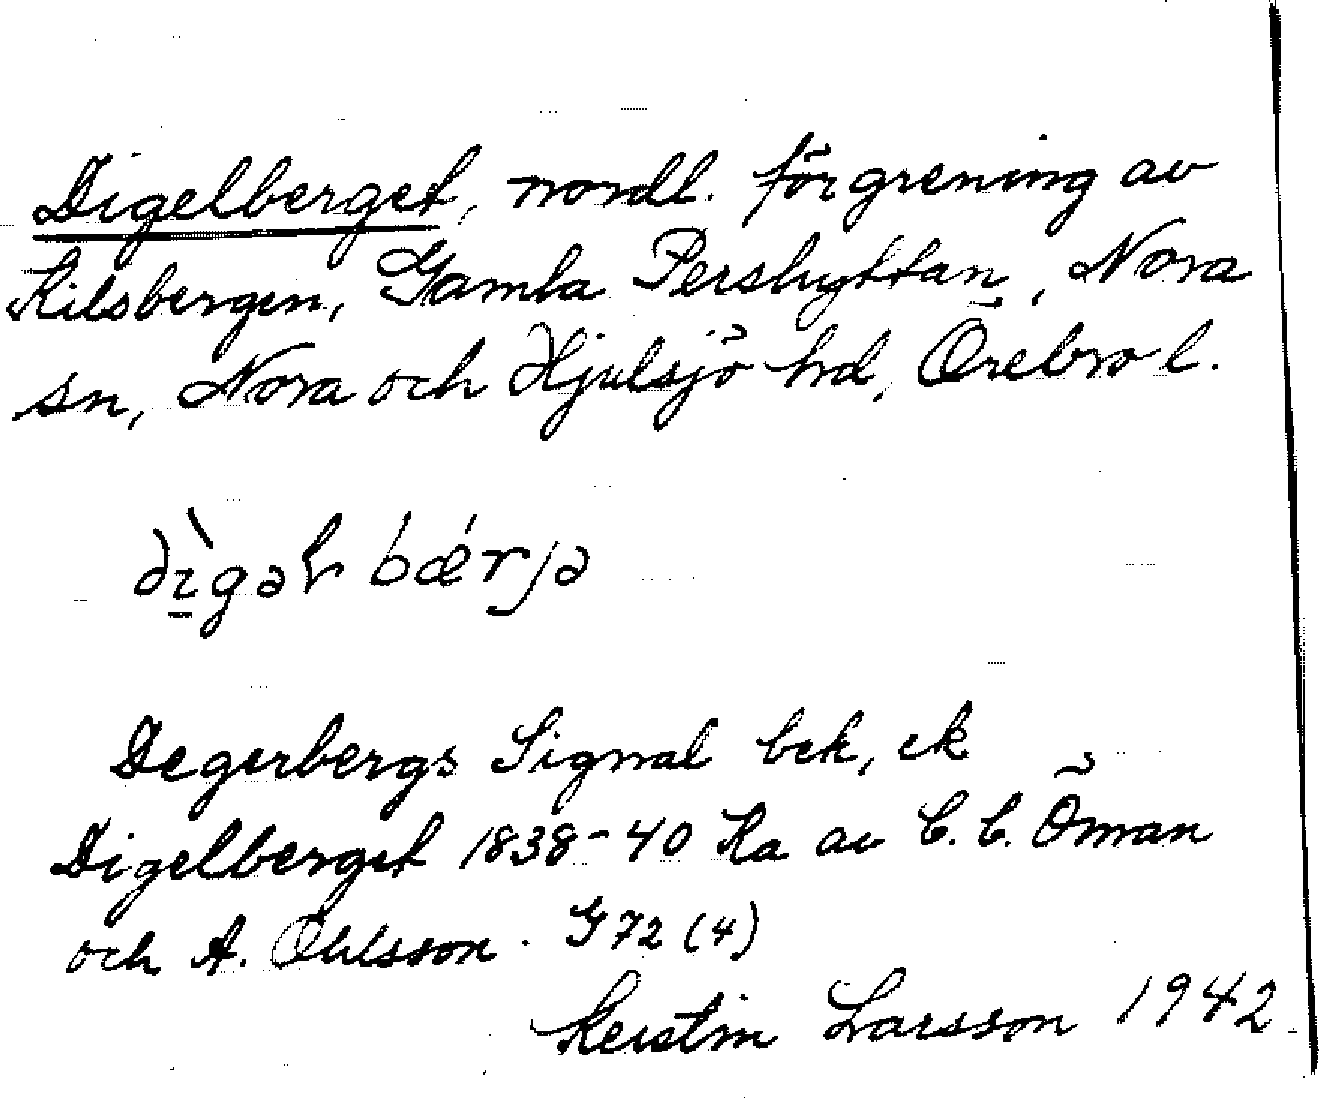 Digelberget, nordl. förgrening av
Kilsbergen, Gamla Pershyttan, Nora
sn, Nora och Hjulsjö hd, Örebro l.
dìgəɫ bǽrjə
Degerbergs Signal bek, ek
Digelberget 1838-40 Ka av C. C. Öman
och A. Ohlsson. G 72 (4)
Kerstin Larsson 1942